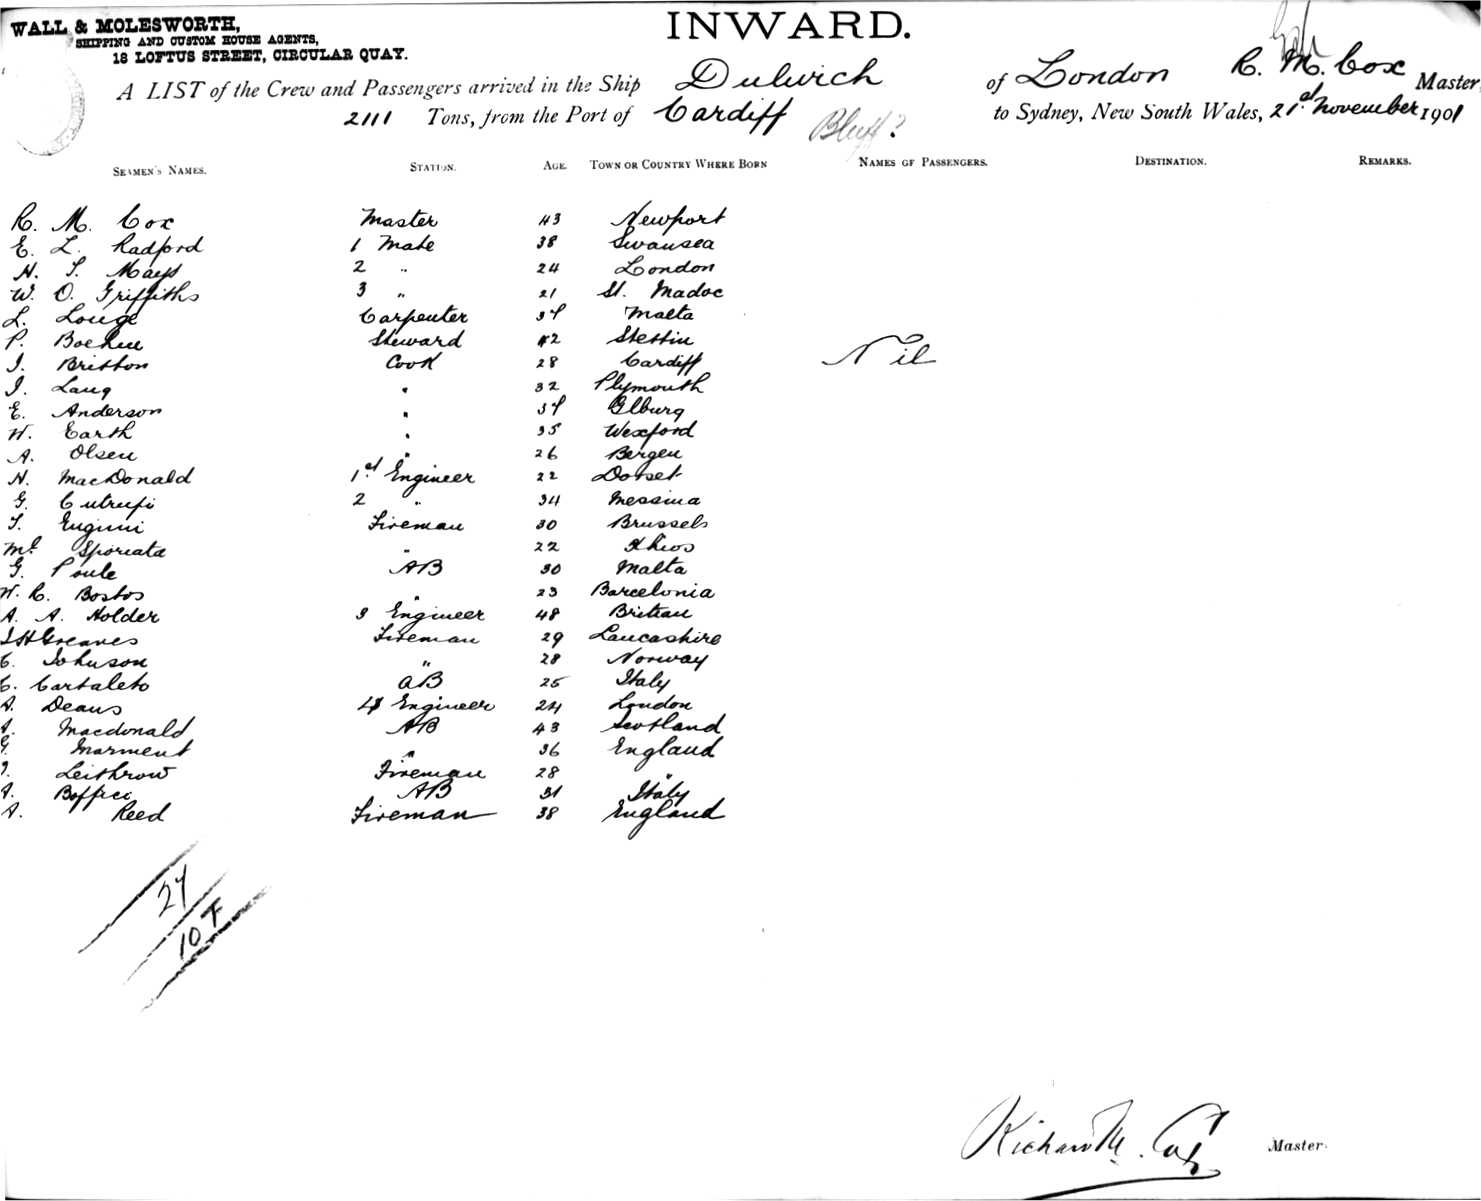 WALL & MOLESWORTH,
SHIPPING AND CUSTOM HOUSE AGENTS,
18 LOFTUS STREET, CIRCULAR QUAY.
INWARD.
A LIST of the Crew and Passengers arrived in the Ship Dulwich of London R. M. Cox Master,
2111 Tons, from the Port of Cardiff Bluff? to Sydney, New South Wales, 21st November 1901
SEAMEN'S NAMES. STATION. AGE. TOWN OR COUNTRY WHERE BORN NAMES OF PASSENGERS. DESTINATION. REMARKS.
R. M. Cox Master 43 Newport
E. L. Radford 1 Mate 38 Swansea
H. T. Mays 2 " 24 London
W. O. Griffiths 3 " 21 St. Madoc
L. Louge Carpenter 37 Malta
P. Steward 42 Stettin
J. Britton Cook 28 Cardiff Nil
J. Lang " 32 Plymouth
E. Anderson " 37 Elburg
W. Earth " 35 Wexford
A. Olsen " 26 Bergen
N. MacDonald 1st Engineer 22 Dorset
G. Cutrupi 2 " 34 Messina
T. Fireman 30 Brussels
Ml. Sporiata " 22 Khios
G. Poule AB 30 Malta
W. R. Bostos " 23 Barcelonia
A. A. Holder 3 Engineer 48 Britian
J H Greaves Fireman 29 Lancashire
C. Johnson " 28 Norway
C. Cartaleto AB 25 Italy
A. Deans 4 Engineer 24 London
A. Macdonald AB 43 Scotland
G. Marment " 36 England
J. Leithrow Fireman 28 "
A. AB 31 Italy
A. Reed Fireman 38 England
27
10 F
Richard M. Cox Master.